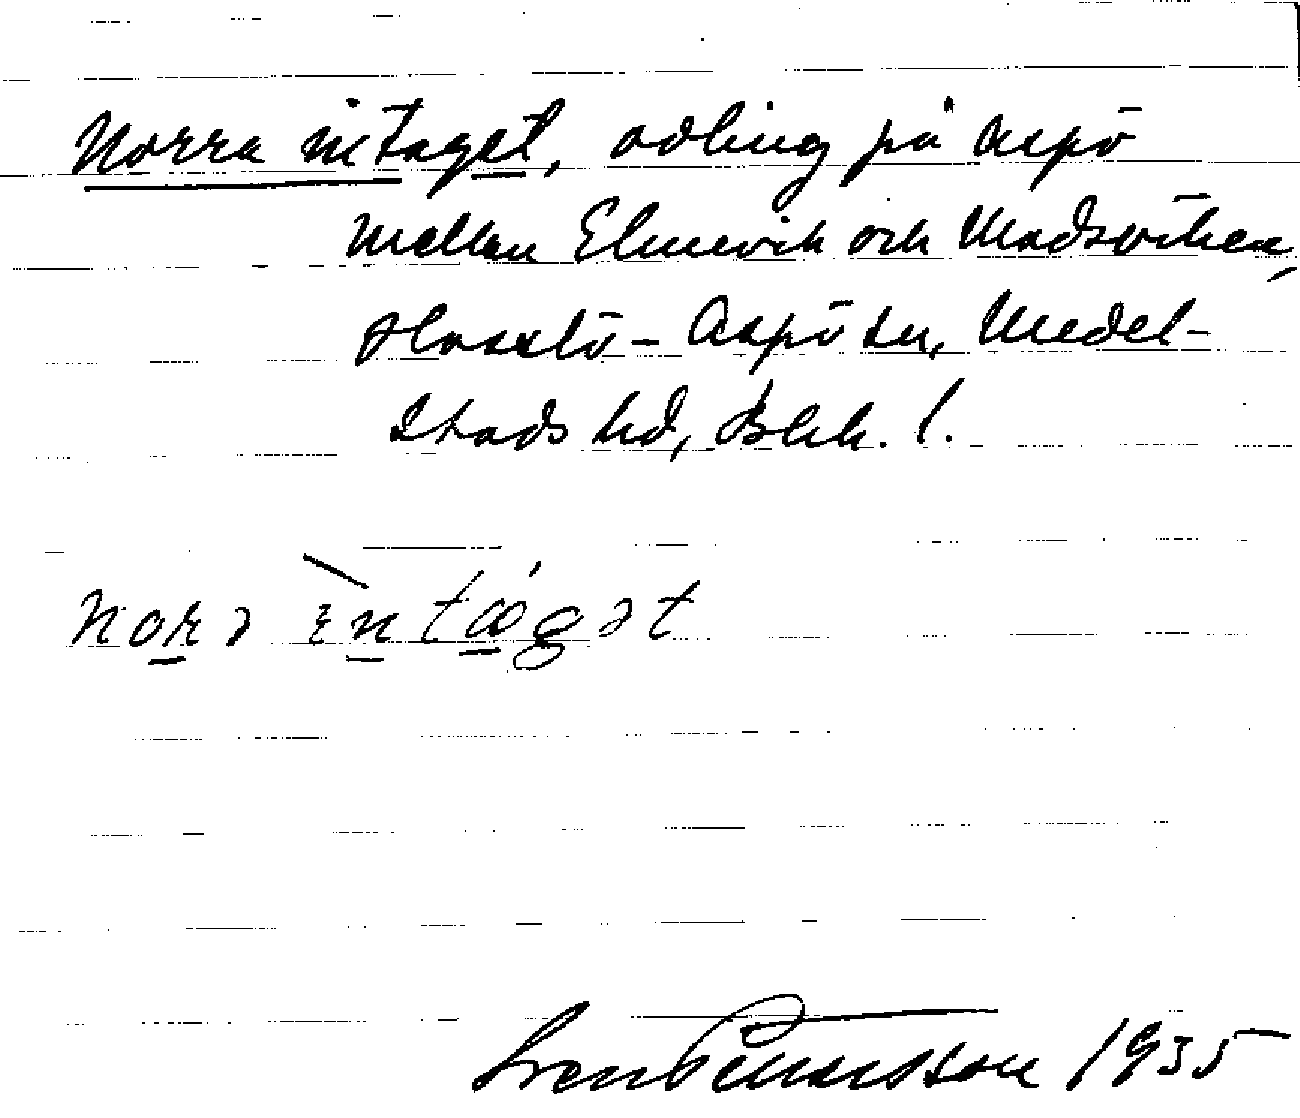 Norra intaget, odling på Aspö
mellan Elmevik och Madsviken,
Hasslö-Aspö sn, Medel-
stads hd, Blek. l.
norə intägət
1935